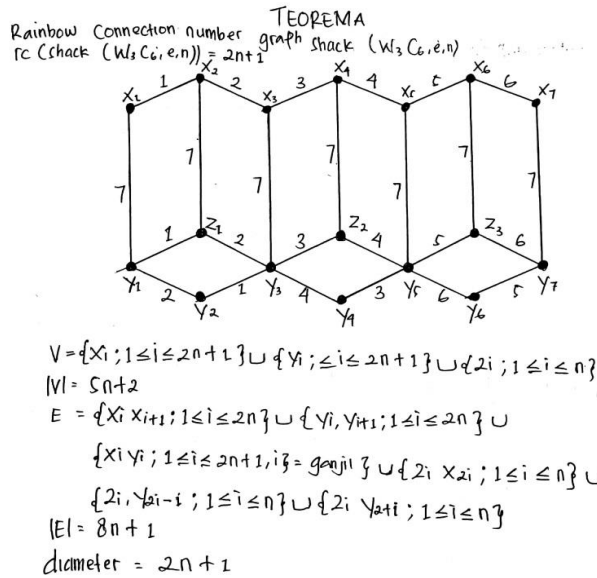 TEOREMA
Rainbow Connection number graph shack (W₃ C₆,e,n)
rc (shack (W₃ C₆, e,n)) = 2n+1
X₁ 1 X₂ 2 X₃ 3 X₄ 4 X₅ 5 X₆ 6 X₇
7 7 7 7 7 7 7
1 Z₁ 2 3 Z₂ 4 5 Z₃ 6
Y₁ 2 Y₂ 1 Y₃ 4 Y₄ 3 Y₅ 6 Y₆ 5 Y₇
V={xi ; 1≤i≤2n+1}∪{Yi ; ≤i≤2n+1}∪{2i ; 1≤i≤n}
|V|= 5n+2
E = {Xi Xi+1 ; 1≤i≤2n}∪{Yi, Yi+1 ; 1≤i≤2n}∪
{Xi Yi ; 1≤i≤2n+1, i}= ganjil}∪{2i X2i ; 1≤i≤n}∪
{2i, Y2i-i ; 1≤i≤n}∪{2i Y2+i ; 1≤i≤n}
|E|= 8n+1
diameter = 2n+1